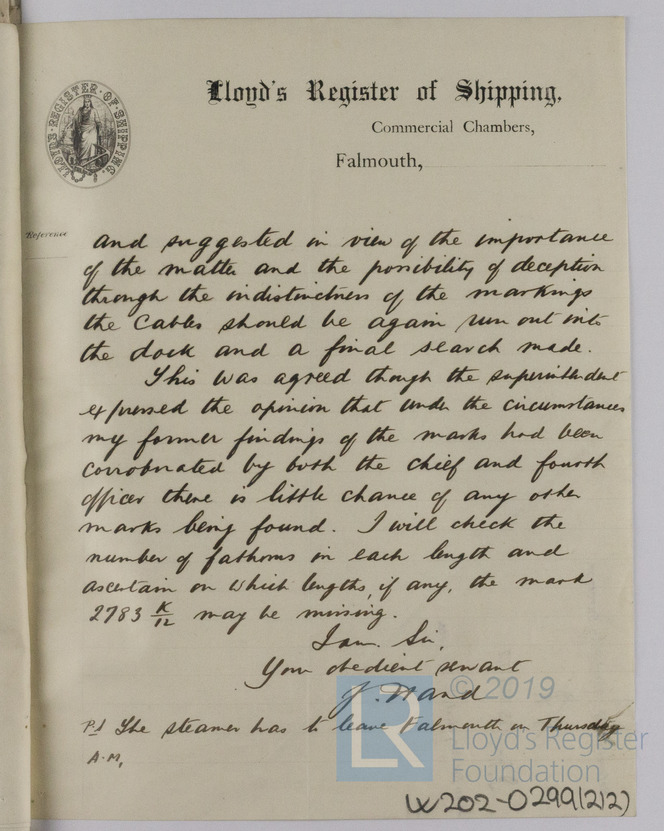 Lloyd's Register of Shipping,
LLOYD'S REGISTER OF SHIPPING.
Commercial Chambers,
Falmouth,
Reference
and suggested in view of the importance
of the matter and the possibility of deception
through the indistinctness of the markings
the Cables should be again run out into
the dock and a final search made.
This was agreed though the superintendent
expressed the opinion that under the circumstances
my former findings of the marks had been
corroborated by both the chief and fourth
officer there is little chance of any other
marks being found. I will check the
number of fathoms in each length and
ascertain on which lengths, if any, the mark
2783 K/12 may be missing.
I am Sir,
Your obedient servant
J. Hand
P.S The steamer has to leave Falmouth on Thursday
A.M,
© 2019
LR
Lloyd's Register
Foundation
W202-0299(2/2)